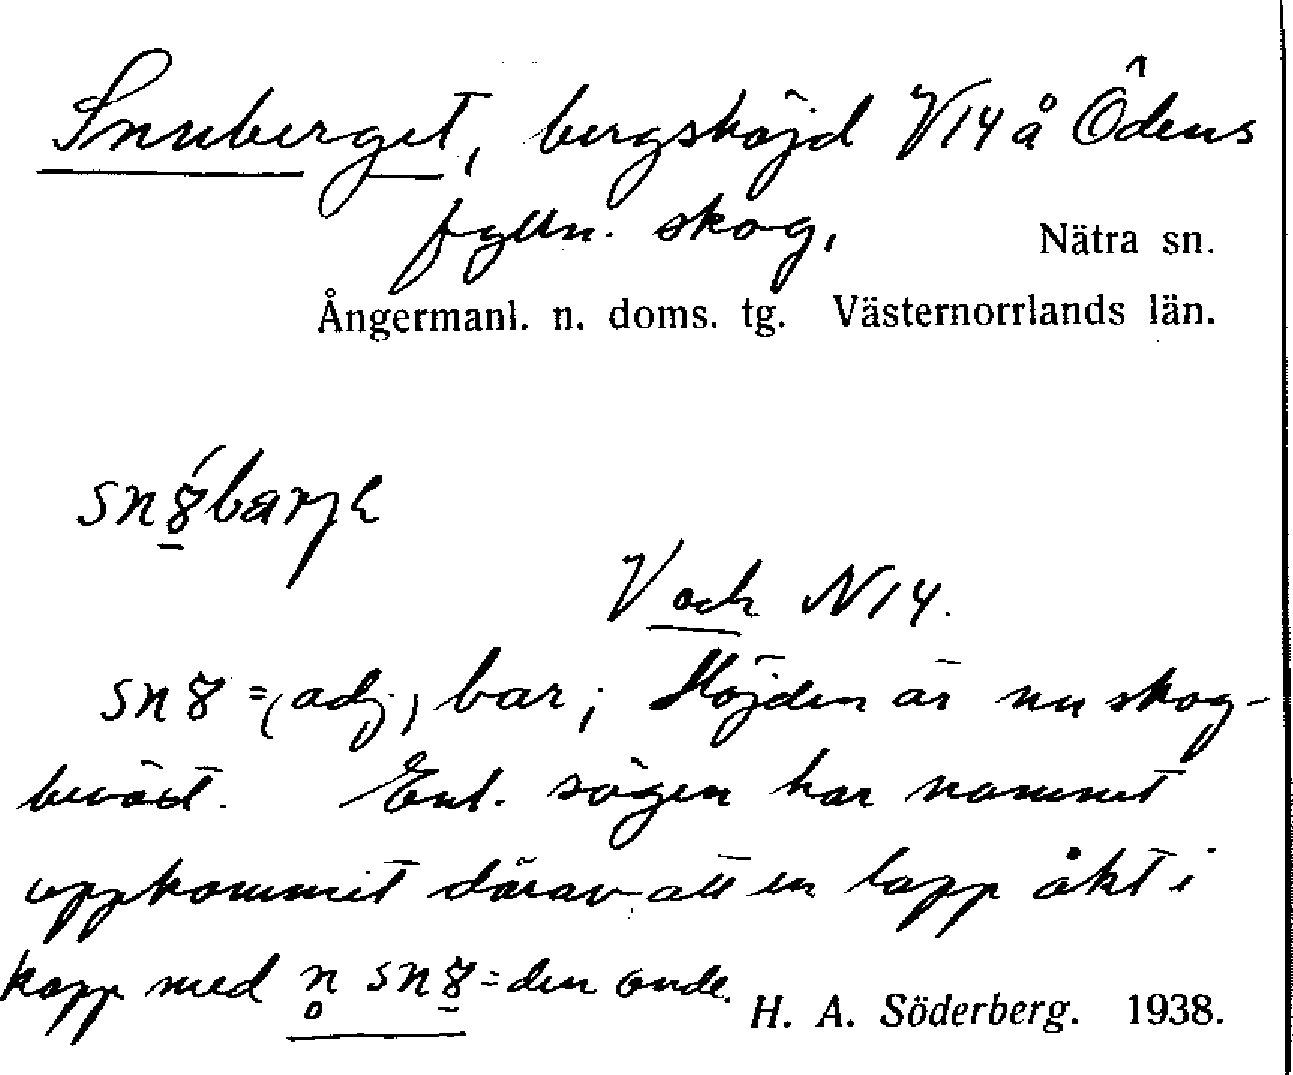 Snuberget, bergshöjd V14 å Ödens
fyltn. skog,
Nätra sn.
Ångermanl. n. doms. tg. Västernorrlands län.
V och N14.
= (adj) bar; Höjden är nu skog-
beväxt. Enl. sägen har namnet
uppkommit därav att en lapp åkt i
kapp med = den onde.
H. A. Söderberg. 1938.